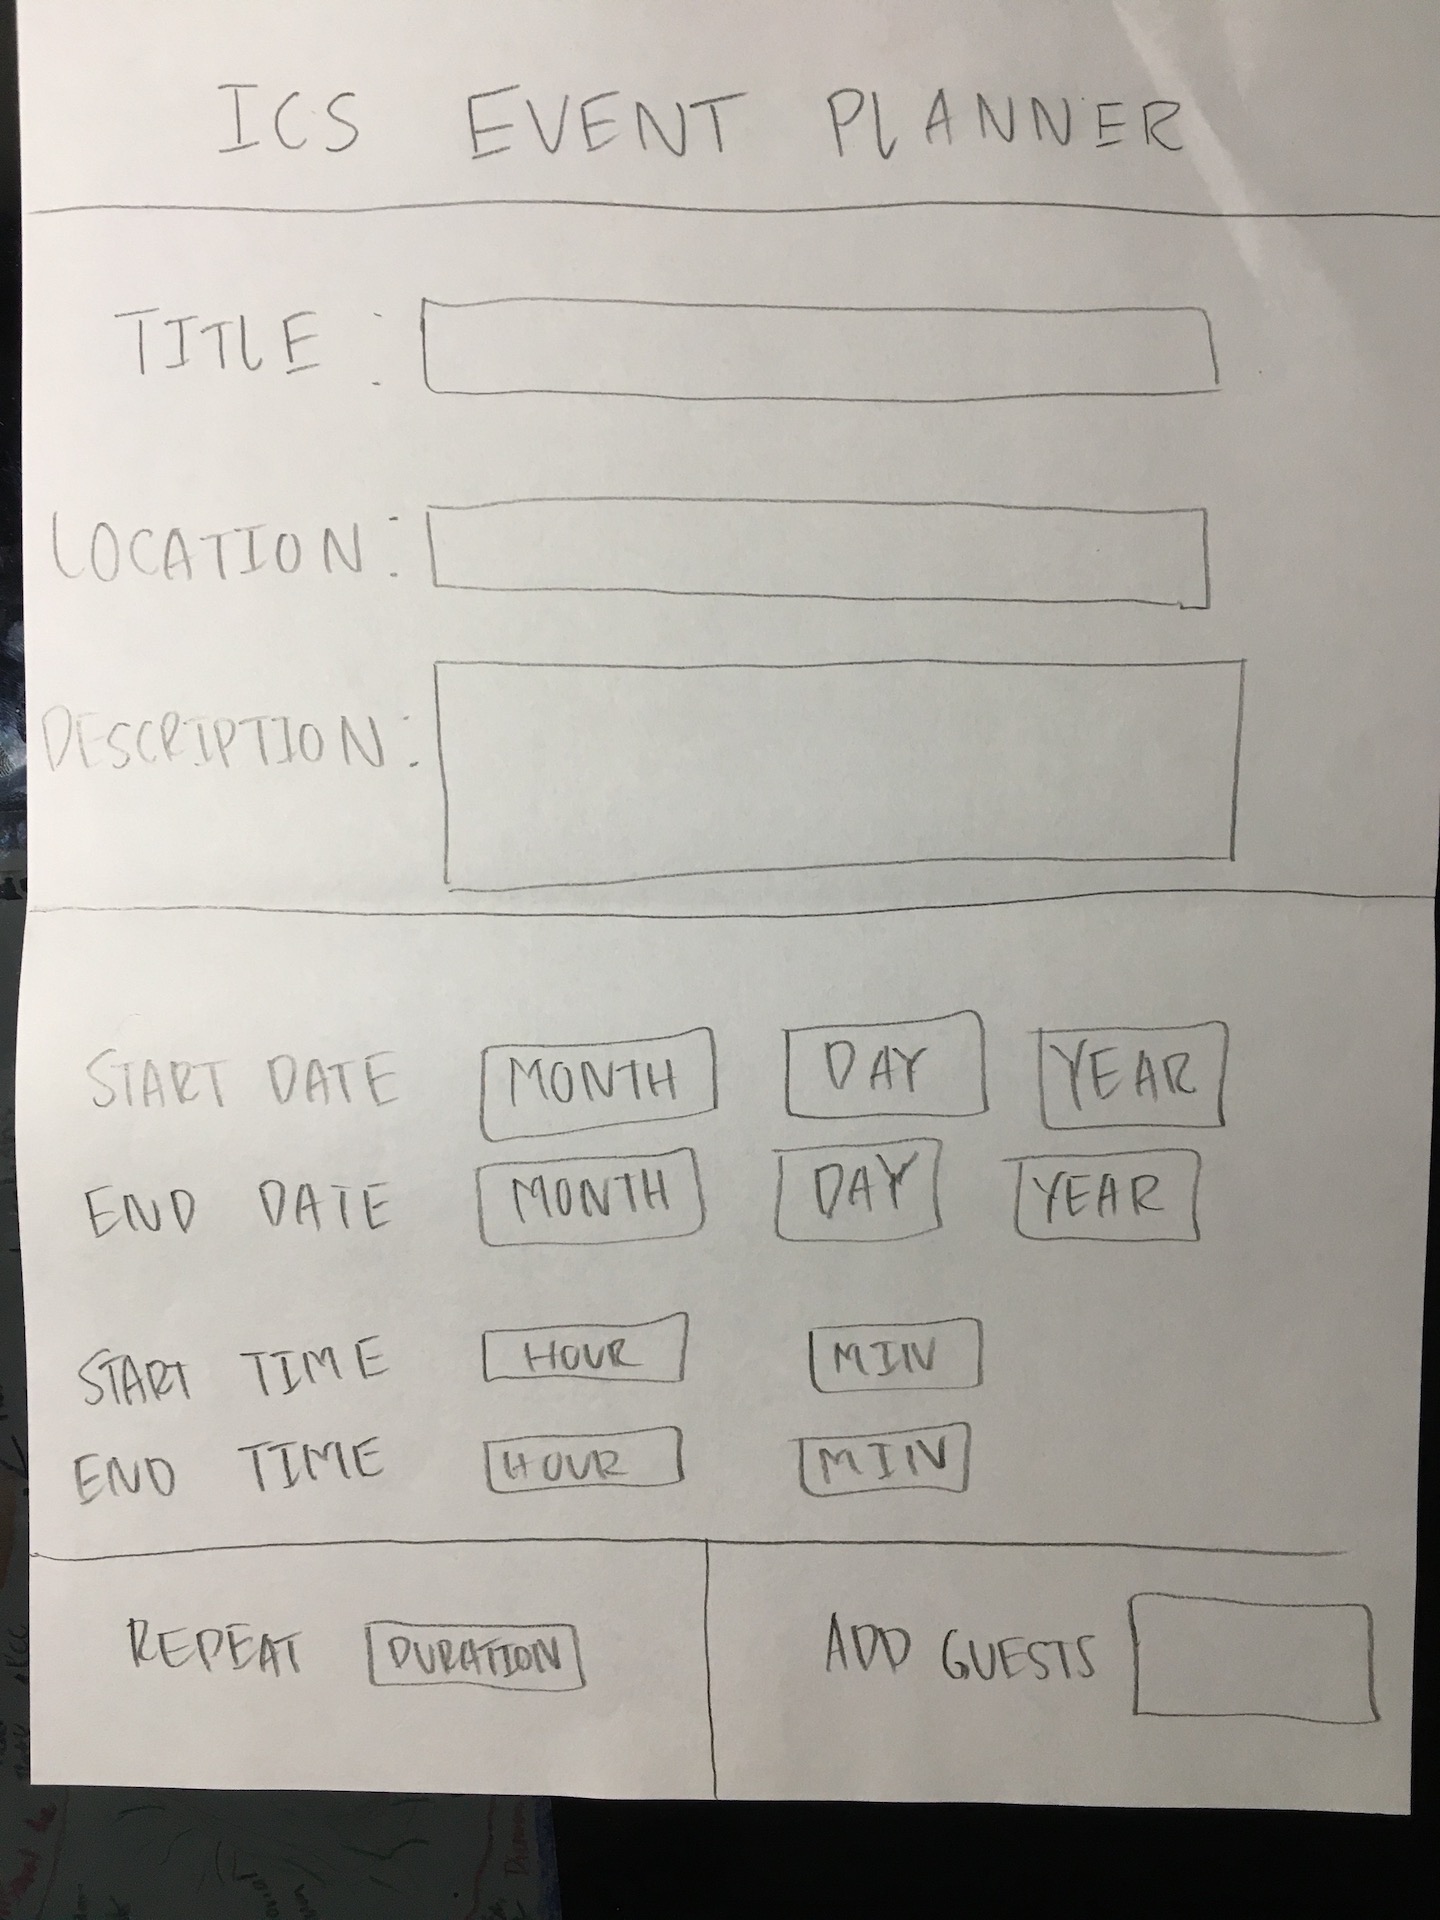 ICS EVENT PLANNER
TITLE :
LOCATION :
DESCRIPTION :
START DATE MONTH DAY YEAR
END DATE MONTH DAY YEAR
START TIME HOUR MIN
END TIME HOUR MIN
REPEAT DURATION ADD GUESTS